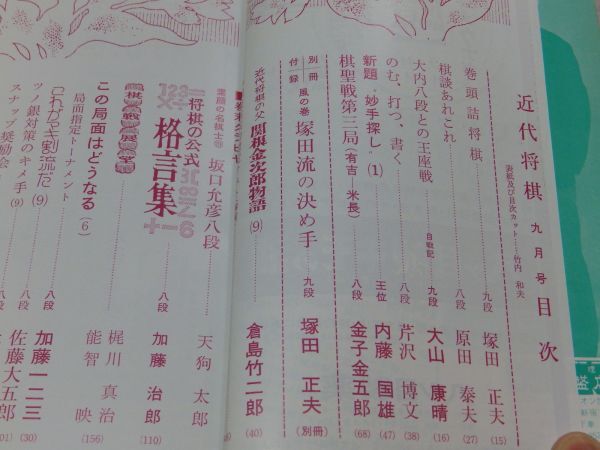 近代将棋 九月号 目次
表紙及び目次カット……竹内 和夫
巻頭詰将棋……九段 塚田 正夫 (15)
棋談あれこれ……八段 原田 泰夫 (27)
大内八段との王座戦……自戦記 九段 大山 康晴 (16)
のむ、打つ、書く……八段 芹沢 博文 (38)
新題〝妙手探し〟(1)……王位 内藤 国雄 (47)
棋聖戦第三局(有吉―米長)……八段 金子金五郎 (68)
別冊付録 風の巻 塚田流の決め手 九段 塚田 正夫 (別冊)
近代将棋の父 関根金次郎物語 (9)……倉島竹二郎 (40)
坂口允彦八段……天狗 太郎
将棋の公式 格言集……八段 加藤 治郎 (110)
この局面はどうなる (6)
梶川 真治
局面指定トーナメント……能智 映 (156)
これが加藤流だ (9)……八段 加藤一二三 (30)
ツノ銀対策のキメ手 (9)……八段 佐藤大五郎
スナップ奨励会